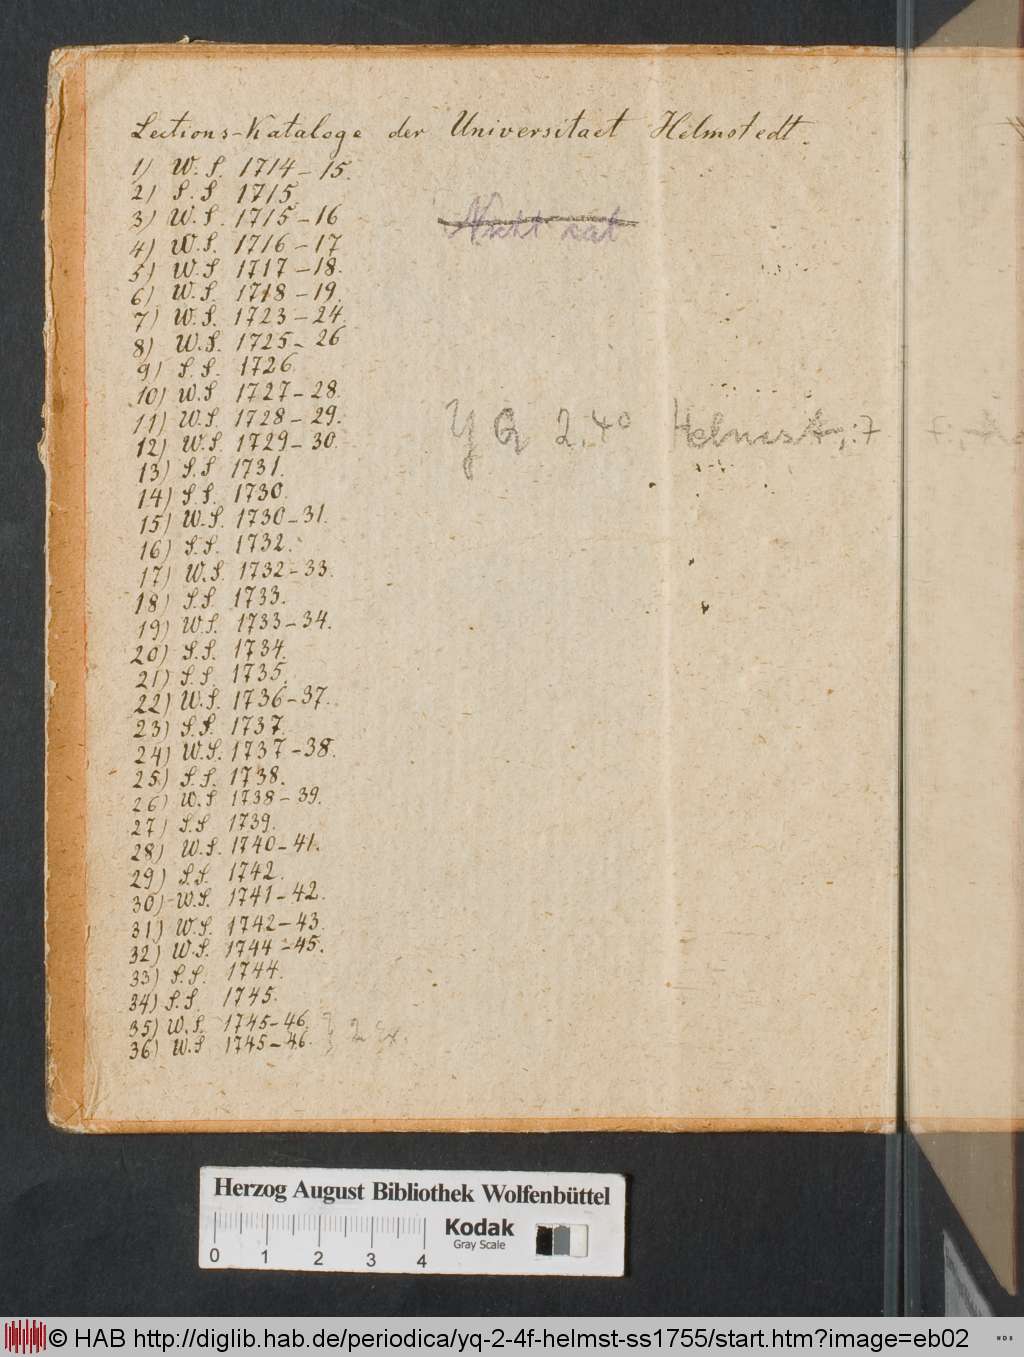 Lections-Kataloge der Universitaet Helmstedt.
1) W. S. 1714-15.
2) S. S 1715.
3) W. S. 1715-16
4) W. S. 1716-17
5) W. S 1717-18.
6) W. S. 1718-19.
7) W. S. 1723-24.
8) W. S. 1725-26
9) S. S. 1726.
10) W. S 1727-28.
11) W. S. 1728-29.
12) W. S. 1729-30.
13) S. S 1731.
14) S. S. 1730.
15) W. S. 1730-31.
16) S. S. 1732.
17) W. S. 1732-33.
18) S. S. 1733.
19) W. S. 1733-34.
20) S. S. 1734.
21) S. S. 1735.
22) W. S. 1736-37.
23) S. S. 1737.
24) W. S. 1737-38.
25) S. S. 1738.
26) W. S 1738-39.
27) S. S 1739.
28) W. S. 1740-41.
29) S. S. 1742.
30) W. S. 1741-42.
31) W. S. 1742-43.
32) W. S. 1744-45.
33) S. S. 1744.
34) S. S. 1745.
35) W. S. 1745-46.
36) W. S 1745-46. } 2 Ex.
Nicht kat
YQ 2. 4° Helmst.:7
Herzog August Bibliothek Wolfenbüttel
0 1 2 3 4
Kodak
Gray Scale
© HAB http://diglib.hab.de/periodica/yq-2-4f-helmst-ss1755/start.htm?image=eb02